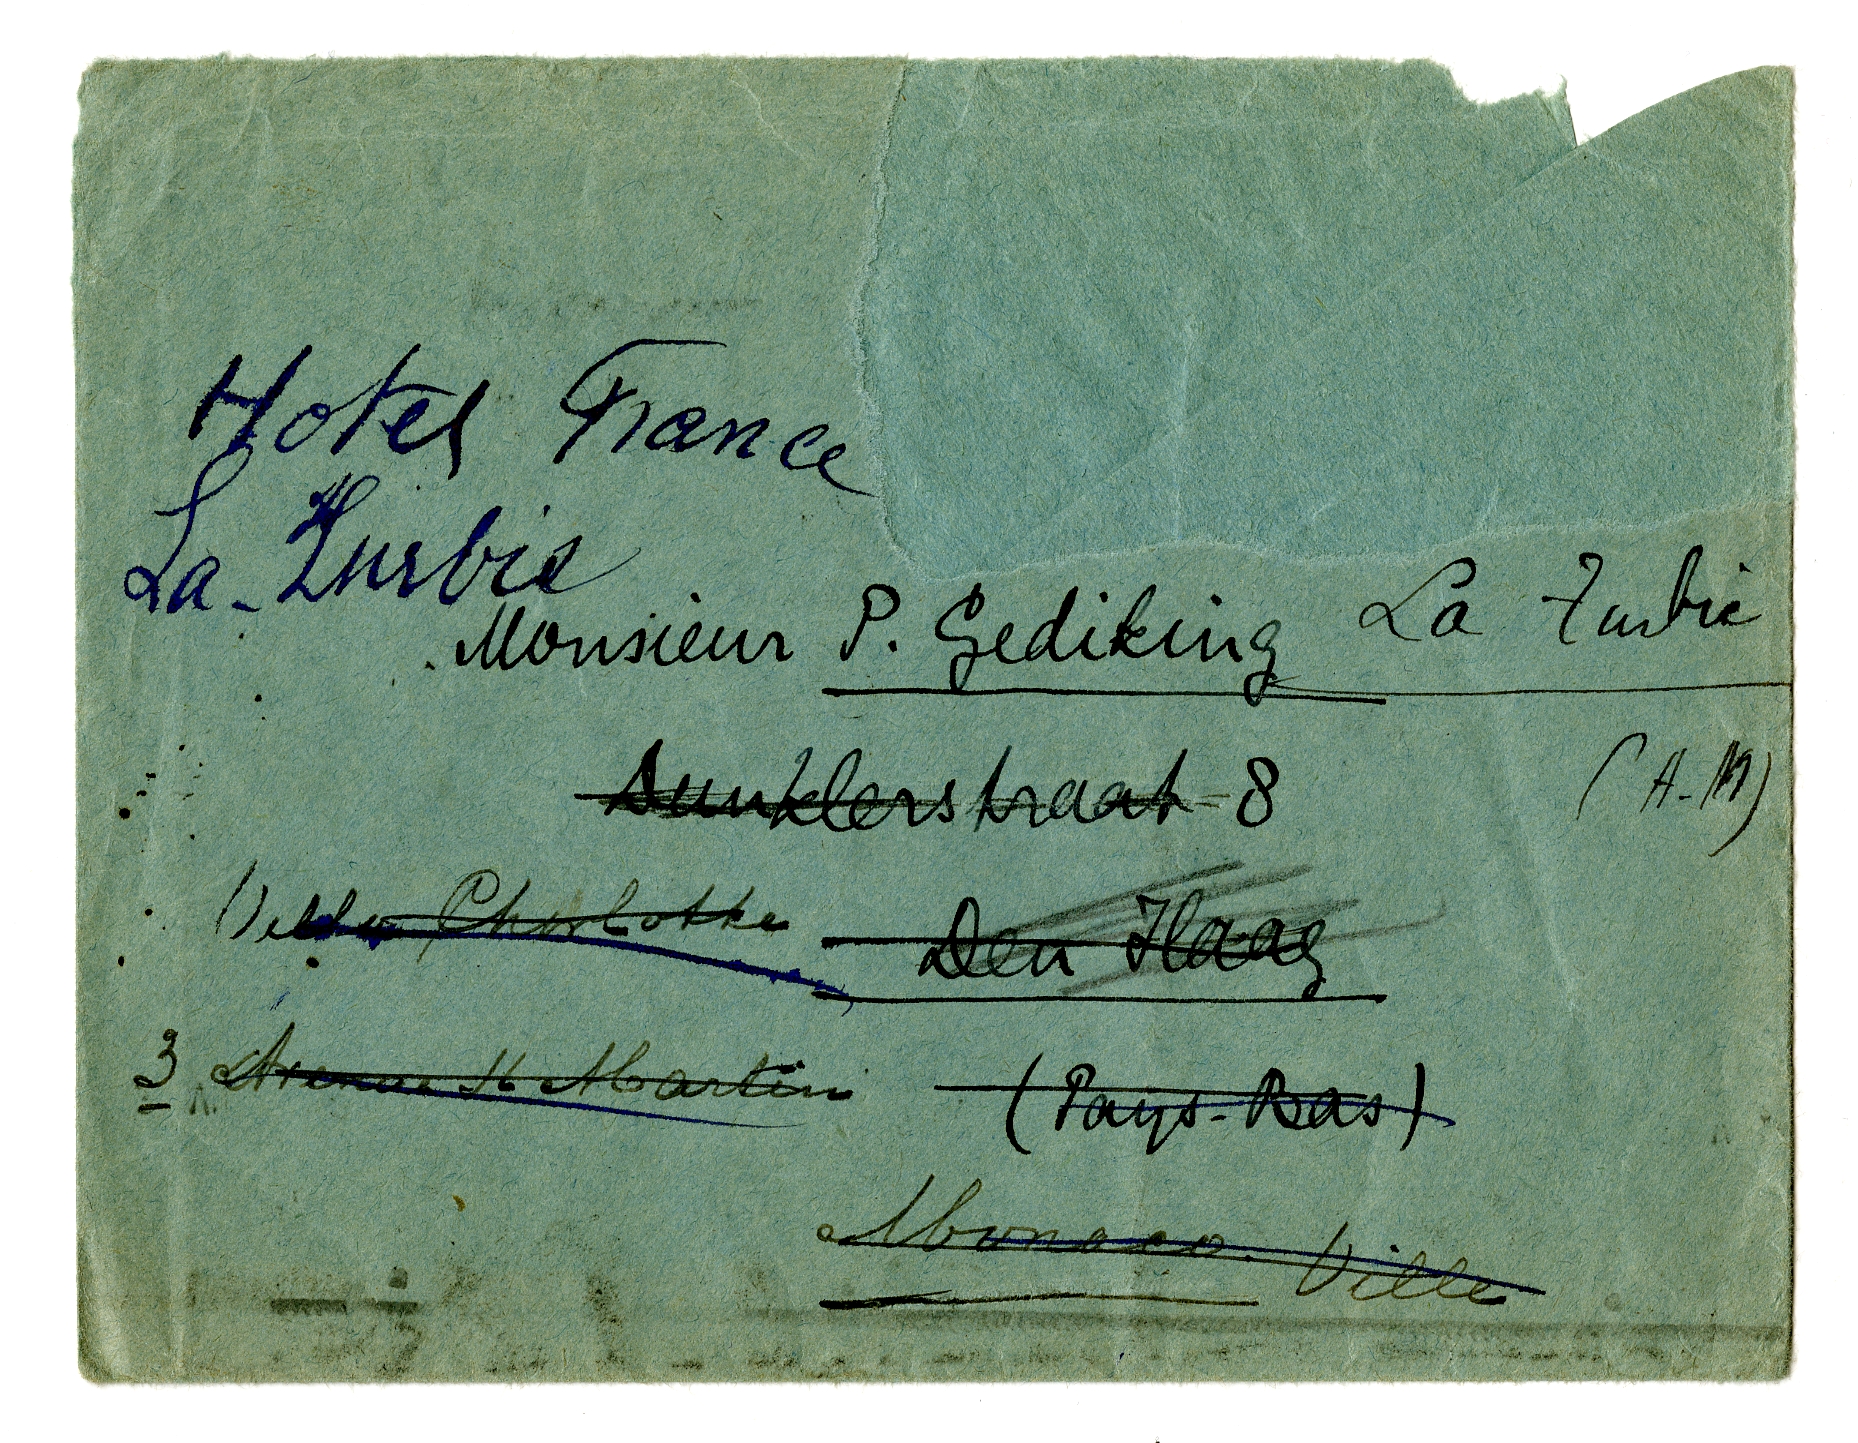 Hotel France
La-Turbie
Monsieur P. Gediking La Turbie
Dunklerstraat 8
(A-M)
Villa Charlotte
Den Haag
3 Avenue St Martin
(Pays-Bas)
Monaco. Ville